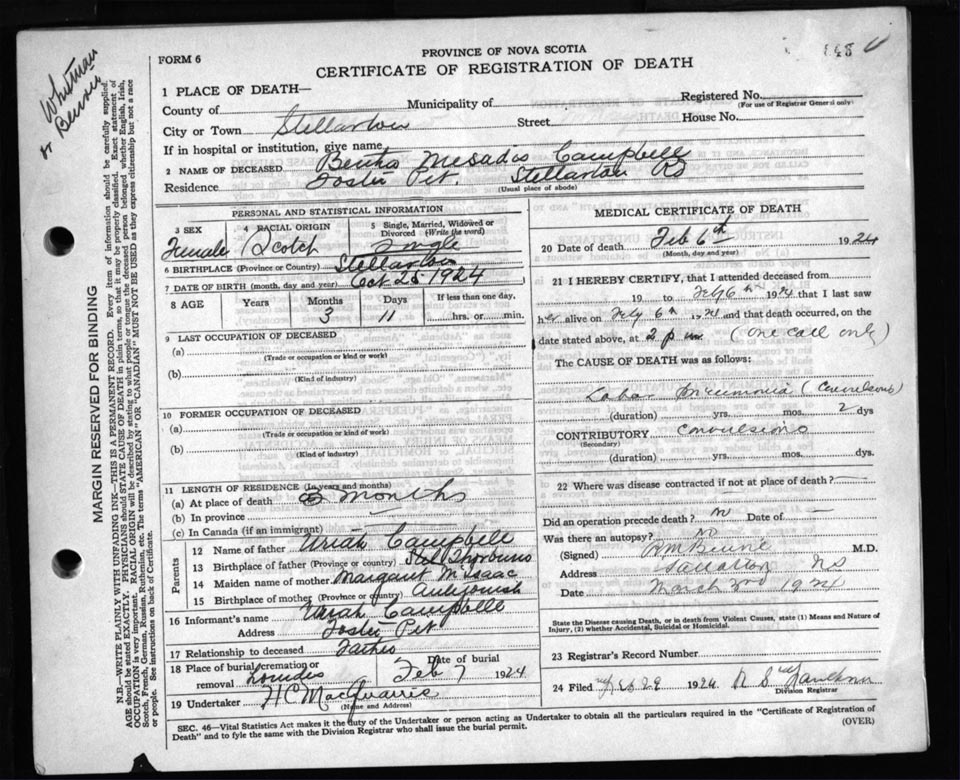 Whitman
or
FORM 6
PROVINCE OF NOVA SCOTIA
CERTIFICATE OF REGISTRATION OF DEATH
1 PLACE OF DEATH—
Registered No.
(For use of Registrar General only)
County of
Municipality of
City or Town Stellarton
Street
House No.
If in hospital or institution, give name
2 NAME OF DECEASED Campbell
Residence Foster Pit. Stellarton Rd
(Usual place of abode)
MARGIN RESERVED FOR BINDING
N.B.—WRITE PLAINLY WITH UNFADING INK—THIS IS A PERMANENT RECORD. Every item of information should be carefully supplied.
AGE should be stated EXACTLY. PHYSICIANS should STATE CAUSE OF DEATH in plain terms, so that it may be properly classified. Exact statement of
OCCUPATION is very important. RACIAL ORIGIN will be described by stating to what people or tongue the deceased person belonged whether English, Irish,
Scotch, French, German, Russian, Ruthenian, etc. The terms "AMERICAN" or "CANADIAN" MUST NOT BE USED as they express citizenship but not a race
or people. See instructions on back of Certificate.
PERSONAL AND STATISTICAL INFORMATION
3 SEX
4 RACIAL ORIGIN
5 Single, Married, Widowed or
Divorced (Write the word)
Female Scotch Single
6 BIRTHPLACE (Province or Country) Stellarton
7 DATE OF BIRTH (month, day and year) Oct 25 1924
8 AGE Years Months Days If less than one day,
3 11 hrs. or min.
9 LAST OCCUPATION OF DECEASED
(a)
(Trade or occupation or kind or work)
(b)
(Kind of industry)
10 FORMER OCCUPATION OF DECEASED
(a)
(Trade or occupation or kind of work)
(b)
(Kind of industry)
11 LENGTH OF RESIDENCE (In years and months)
(a) At place of death 3 months
(b) In province
(c) In Canada (if an immigrant)
Parents
12 Name of father Uriah Campbell
13 Birthplace of father (Province or Country)
14 Maiden name of mother Margaret McIsaac
15 Birthplace of mother (Province or Country) Antigonish
16 Informant's name Uriah Campbell
Address Foster Pit
17 Relationship to deceased Father
18 Place of burial, cremation or
removal Lourdes
Date of burial
Feb 7 1924
19 Undertaker H C MacQuarrie
(Name and Address)
MEDICAL CERTIFICATE OF DEATH
20 Date of death Feb 6th 1924
(Month, day and year)
21 I HEREBY CERTIFY, that I attended deceased from
19 to Feb 6th 1924 that I last saw
her alive on Feb 6th 1924 and that death occurred, on the
date stated above, at 2 p m (One call only)
The CAUSE OF DEATH was as follows:
Lobar Pneumonia (Convulsions)
(duration) yrs. mos. 2 dys
CONTRIBUTORY Convulsions
(Secondary)
(duration) yrs. mos. dys.
22 Where was disease contracted if not at place of death?
Did an operation precede death? no Date of
Was there an autopsy? no
(Signed) M.D.
Address Stellarton NS
Date March 3rd 1924
State the Disease causing Death, or in death from Violent Causes, state (1) Means and Nature of
Injury, (2) whether Accidental, Suicidal or Homicidal.
23 Registrar's Record Number
24 Filed Feb 29 1924
Division Registrar
SEC. 46—Vital Statistics Act makes it the duty of the Undertaker or person acting as Undertaker to obtain all the particulars required in the "Certificate of Registration of
Death" and to fyle the same with the Division Registrar who shall issue the burial permit.
(OVER)